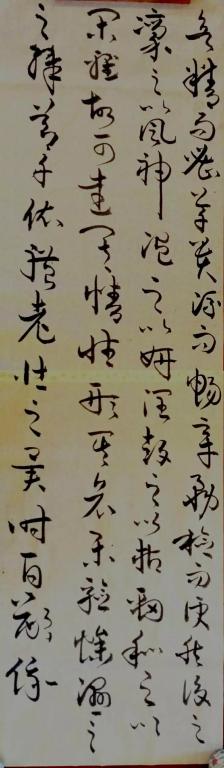 欲精而密草貴流而暢章務檢而便然後之
凛之以風神温之以妍潤鼓之以枯勁和之以
閑雅故可達其情性形其哀樂驗燥濕之
之殊節千古依體老壯之異時百齡俄